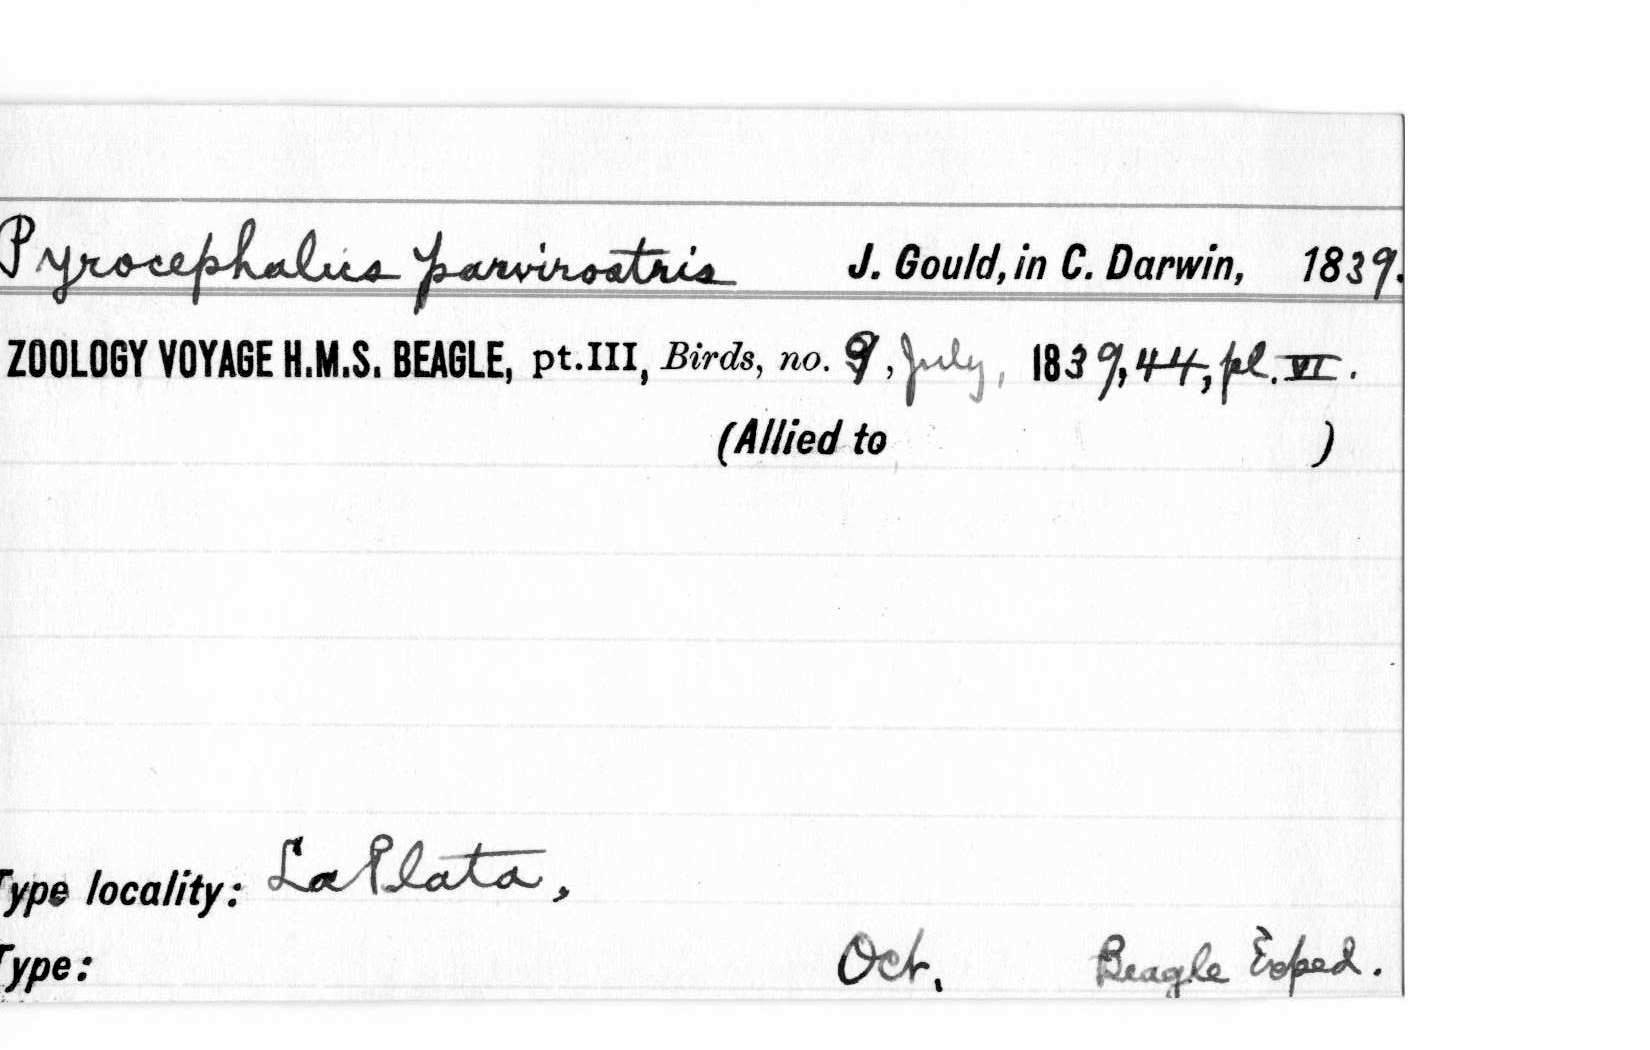 Pyrocephalus parvirostris J. Gould, in C. Darwin, 1839.
ZOOLOGY VOYAGE H.M.S. BEAGLE, pt.III, Birds, no. 9, July, 1839, 44, pl. VI.
(Allied to )
Type locality: La Plata,
Type: Oct. Beagle Exped.